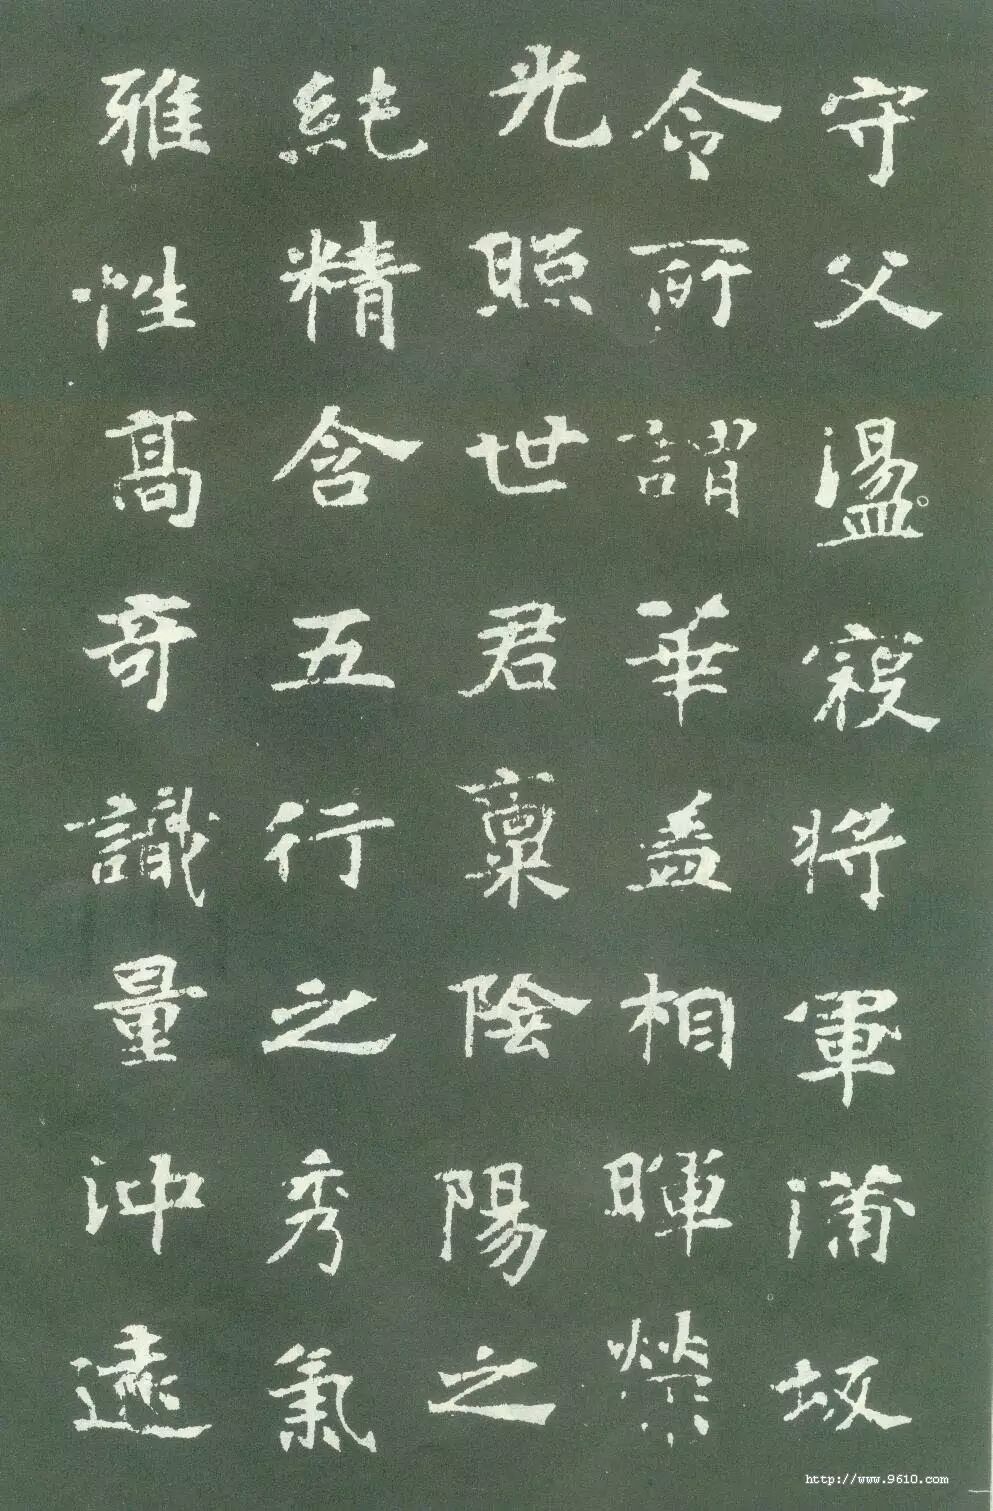 守父盪寇將軍蒲坂
令所謂華盖相暉榮
光照世君稟陰陽之
純精含五行之秀氣
雅性高奇識量沖遠
http://www.9610.com